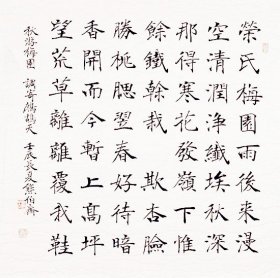 榮氏梅園雨後來漫
空清潤淨纖埃秋深
那得寒花發嶺下惟
餘鐵幹栽 欺杏臉
勝桃腮翌春好待暗
香開而今暫上高坪
望荒草離離覆我鞋
秋游梅園 調寄鷓鴣天 壬辰長夏熊伯齊